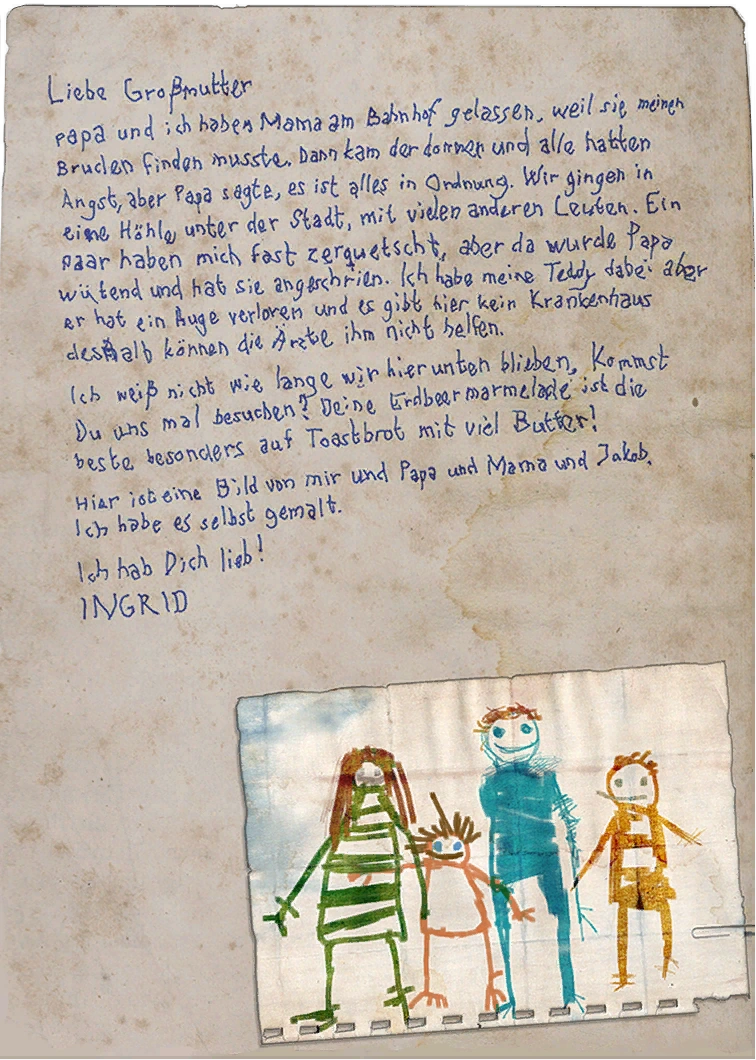 Liebe Großmutter
Papa und ich haben Mama am Bahnhof gelassen, weil sie meinen
Bruden finden musste. Dann kam der donner und alle hatten
Angst, aber Papa sagte, es ist alles in Ordnung. Wir gingen in
eine Höhle unter der Stadt, mit vielen anderen Leuten. Ein
paar haben mich fast zerquetscht, aber da wurde Papa
wütend und hat sie angeschrien. Ich habe meine Teddy dabei aber
er hat ein Auge verloren und es gibt hier kein Krankenhaus
deshalb können die Ärzte ihm nicht helfen.
Ich weiß nicht wie lange wir hier unten blieben, Kommst
Du uns mal besuchen? Deine Erdbeermarmelade ist die
beste besonders auf Toastbrot mit viel Butter!
Hier ist eine Bild von mir und Papa und Mama und Jakob.
Ich habe es selbst gemalt.
Ich hab Dich lieb!
INGRID